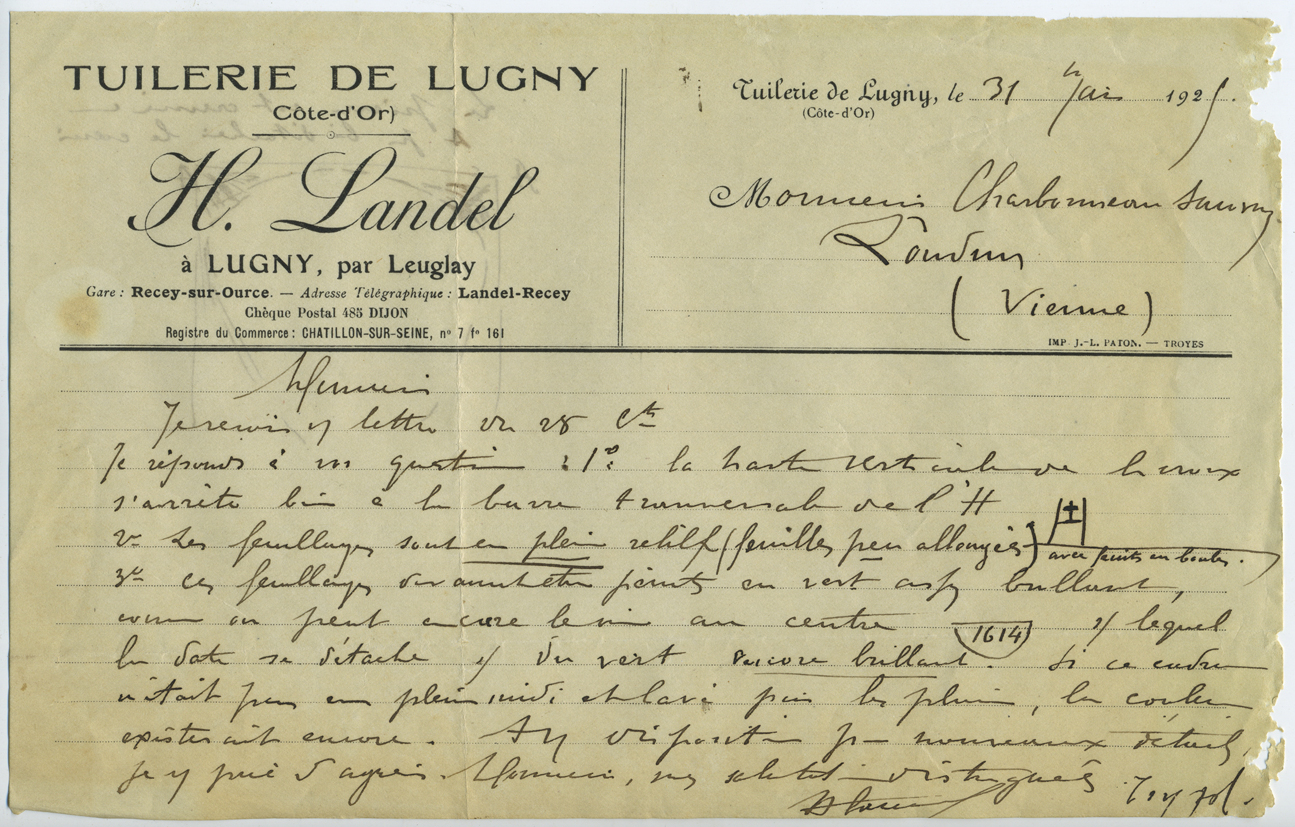 TUILERIE DE LUGNY
(Côte-d'Or)
H. Landel
à LUGNY, par Leuglay
Gare : Recey-sur-Ource. — Adresse Télégraphique : Landel-Recey
Chèque Postal 485 DIJON
Registre du Commerce : CHATILLON-SUR-SEINE, nº 7 fº 161
Tuilerie de Lugny, le 31 1925.
(Côte-d'Or)
Monsieur Charbonneau
Loudun
(Vienne)
IMP. J.-L. PATON. — TROYES
Monsieur
Je reçois lettre du 28 Ct
Je réponds à vos question : 1º : la haste verticale de la croix
s'arrête bien à la barre transversale de l'H
2º Les feuillages sont en plein relief (feuilles peu allongées) avec fruits en boules.
3º ces feuillages devaient être peints en vert assez brillant,
comme on peut encore le voir au centre 1614 s/ lequel
la date se détache s/ du vert encore brillant. Si ce cadre
n'était pas en plein midi et lavé par les pluies, la couleur
existerait encore. A disposition pr nouveaux détails,
Je prie d'agréer Monsieur, mes salutat distinguées